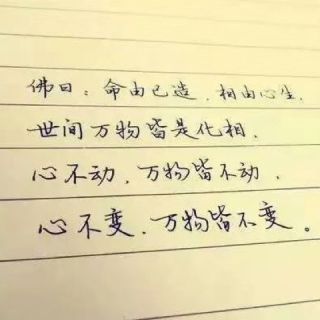 佛曰：命由己造．相由心生．
世间万物皆是化相．
心不动．万物皆不动．
心不变．万物皆不变。